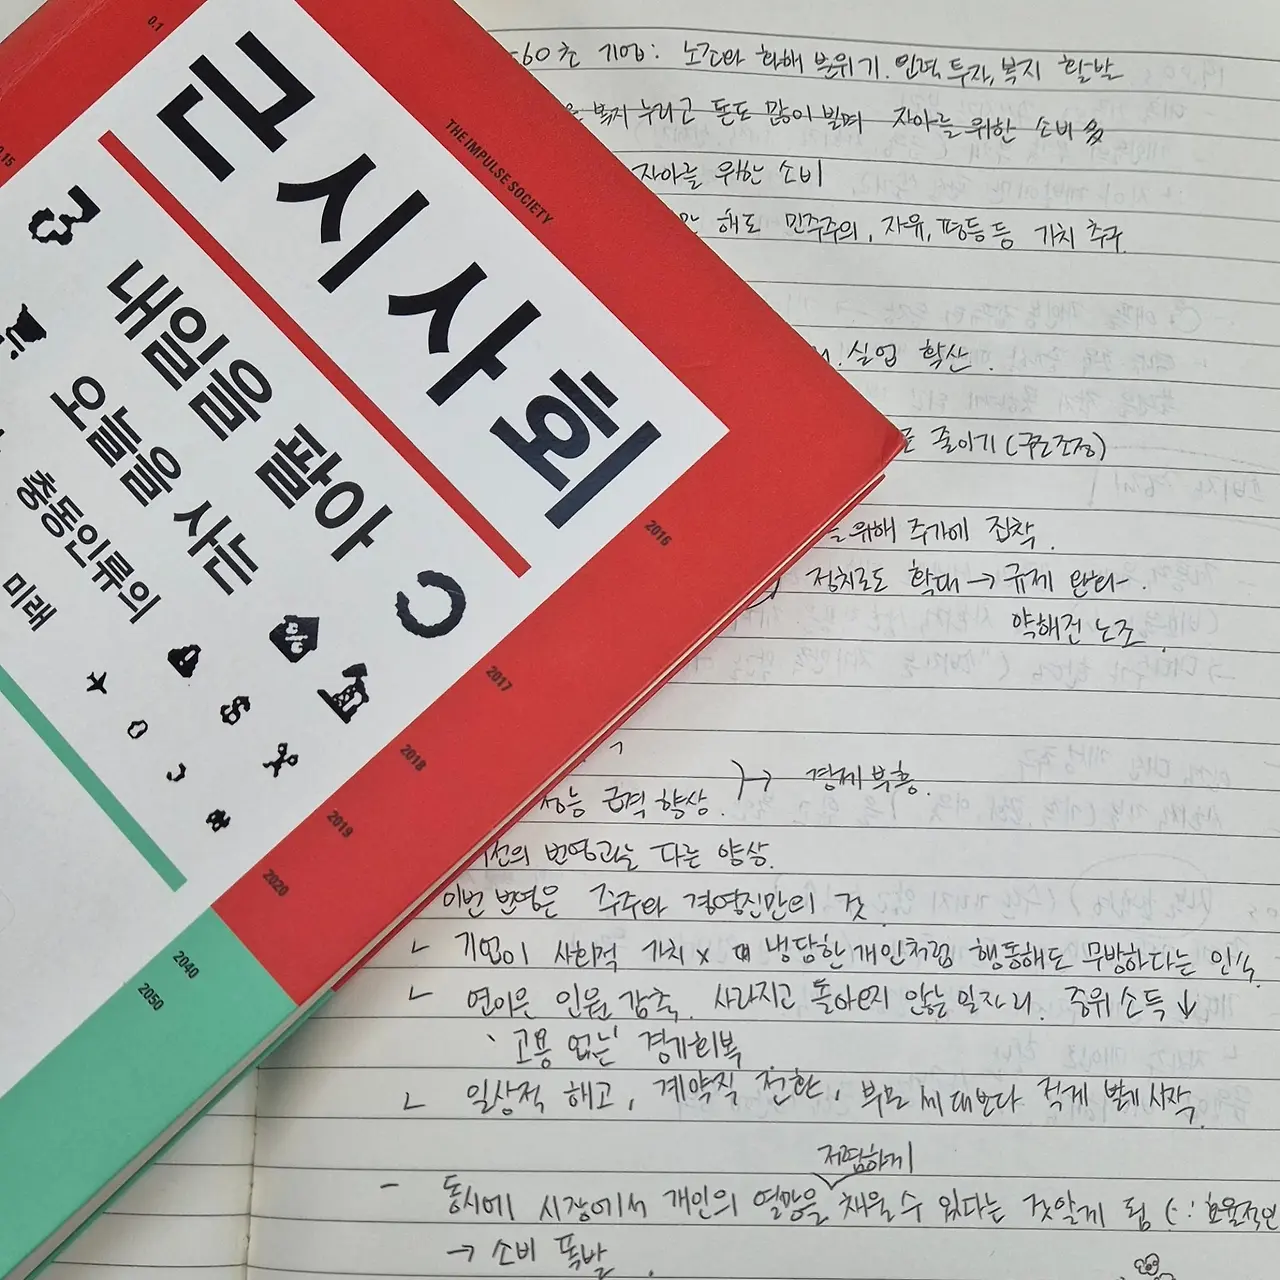 근시사회
THE IMPULSE SOCIETY
내일을 팔아
오늘을 사는
충동인류의
미래
0.1
0.15
2016
2017
2018
2019
2020
2040
2050
60초 기업: 노조와 화해 분위기. 인력 투자, 복지 활발
복지 누리고 돈도 많이 벌며 자아를 위한 소비
자아를 위한 소비
해도 민주주의, 자유, 평등 등 가치 추구.
실업 확산.
줄이기 (구조조정)
위해 주가에 집착.
정치로도 확대 → 규제 완화
약해진 노조.
성능 급격 향상. → 경제 부흥.
전의 번영과는 다른 양상.
이번 번영은 주주와 경영진만의 것
ㄴ 기업이 사회적 가치 x 냉담한 개인처럼 행동해도 무방하다는 인식.
ㄴ 연이은 인원 감축. 사라지고 돌아오지 않는 일자리. 중위 소득 ↓
'고용 없는' 경기회복
ㄴ 일상적 해고, 계약직 전환, 부모 세대보다 적게 벌기 시작.
저렴하게
- 동시에 시장에서 개인의 열망을 채울 수 있다는 것 알게 됨 (∵ 효율적인
→ 소비 폭발.